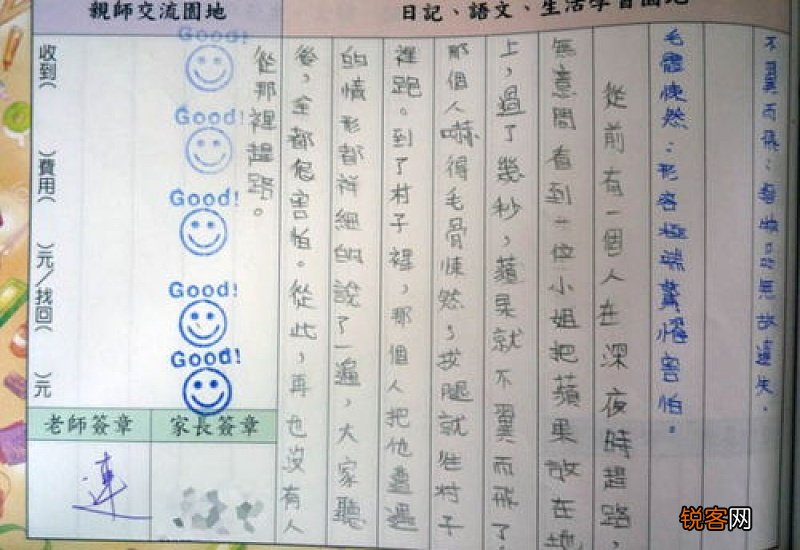 親師交流園地
日記、語文、生活學習園地
不翼而飛：物品無故遺失。
毛骨悚然：形容極端驚懼害怕。
從前有一個人在深夜時趕路，
無意間看到一位小姐把蘋果放在地
上，過了幾秒，蘋果就不翼而飛了，
那個人嚇得毛骨悚然，拔腿就往村子
裡跑。到了村子裡，那個人把他遭遇
的情形都祥細的說了一遍，大家聽
後，全都危害怕。從此，再也沒有人
從那裡趕路。
Good!
Good!
Good!
Good!
Good!
收到（　）費用（　）元／找回（　）元
老師簽章
家長簽章
連
锐客网